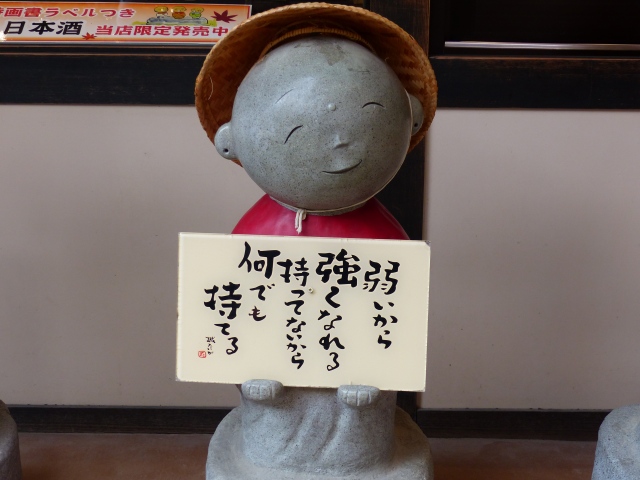 画書ラベルつき
日本酒 当店限定発売中
弱いから
強くなれる
持ってないから
何でも
持てる